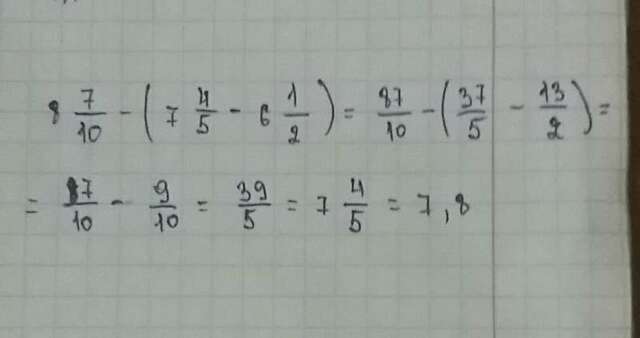 8 7/10 - (7 4/5 - 6 1/2) = 87/10 - (37/5 - 13/2) =
= 87/10 - 9/10 = 39/5 = 7 4/5 = 7,8